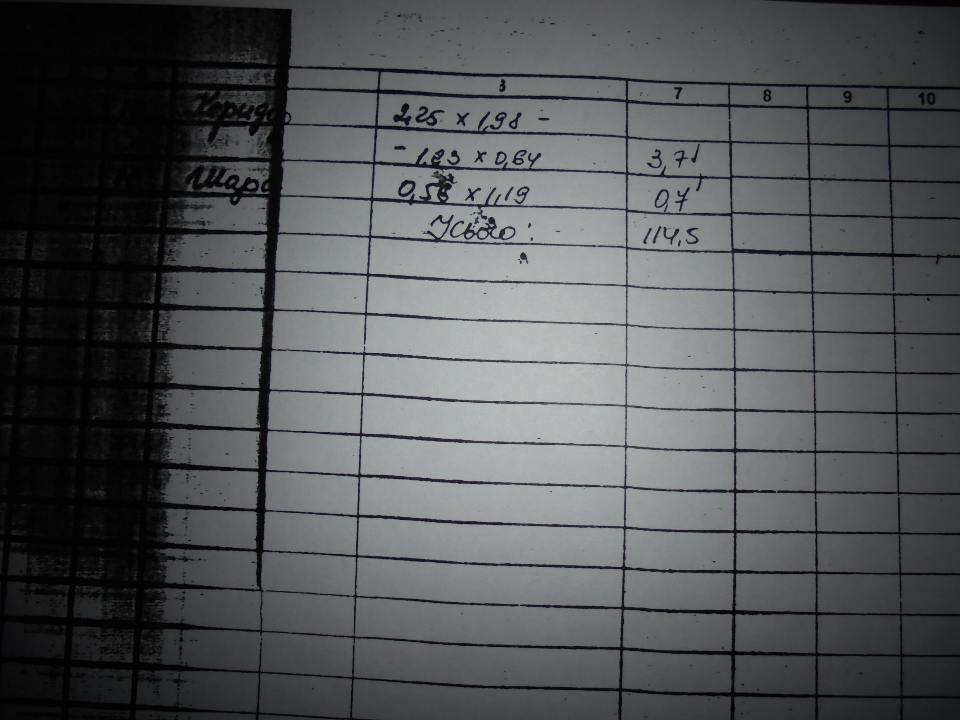 3 7 8 9 10
Коридор 2,25 x 1,98 -
- 1.23 x 0,64 3,7
Шафа 0,56 x 1,19 0,7
Усього: 114,5